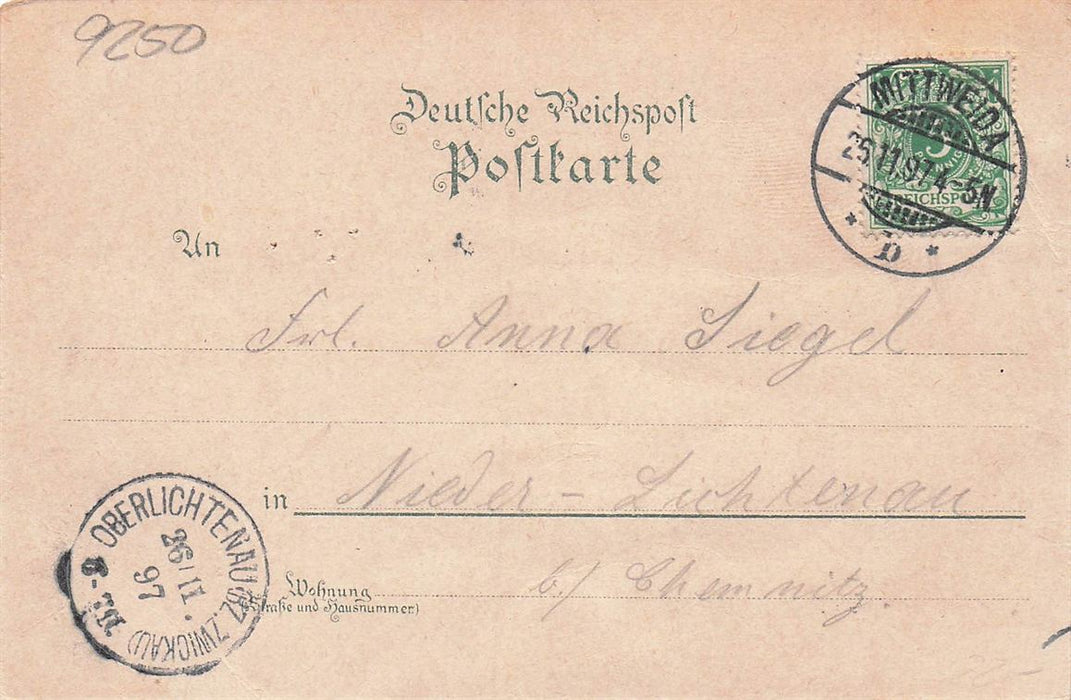 9250
Deutsche Reichspost
Postkarte
MITTWEIDA
25.11.97.4-5N
* b *
PFENNIG
REICHSPOST
An
Frl. Anna Siegel
in Nieder-Lichtenau
b/ Chemnitz
Wohnung
(Straße und Hausnummer)
OBERLICHTENAU (BZ. ZWICKAU)
26/11.
97